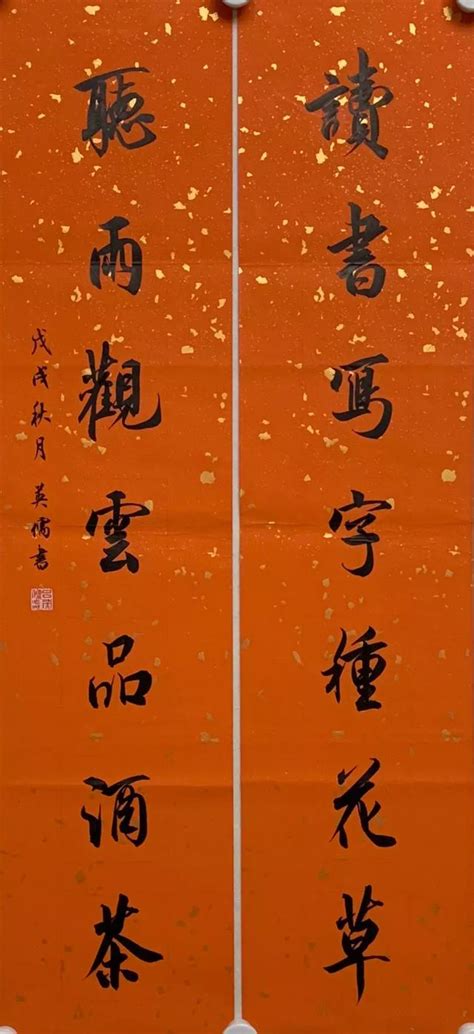 讀書寫字種花草
聽雨觀雲品酒茶
戊戌秋月 英儒書